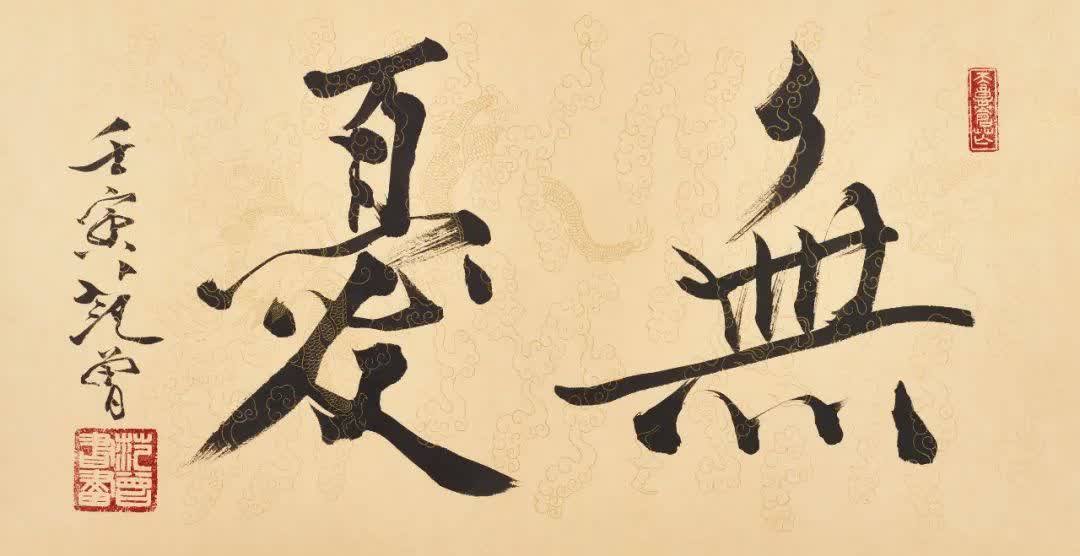 無憂
壬寅范曾
范曾書畫